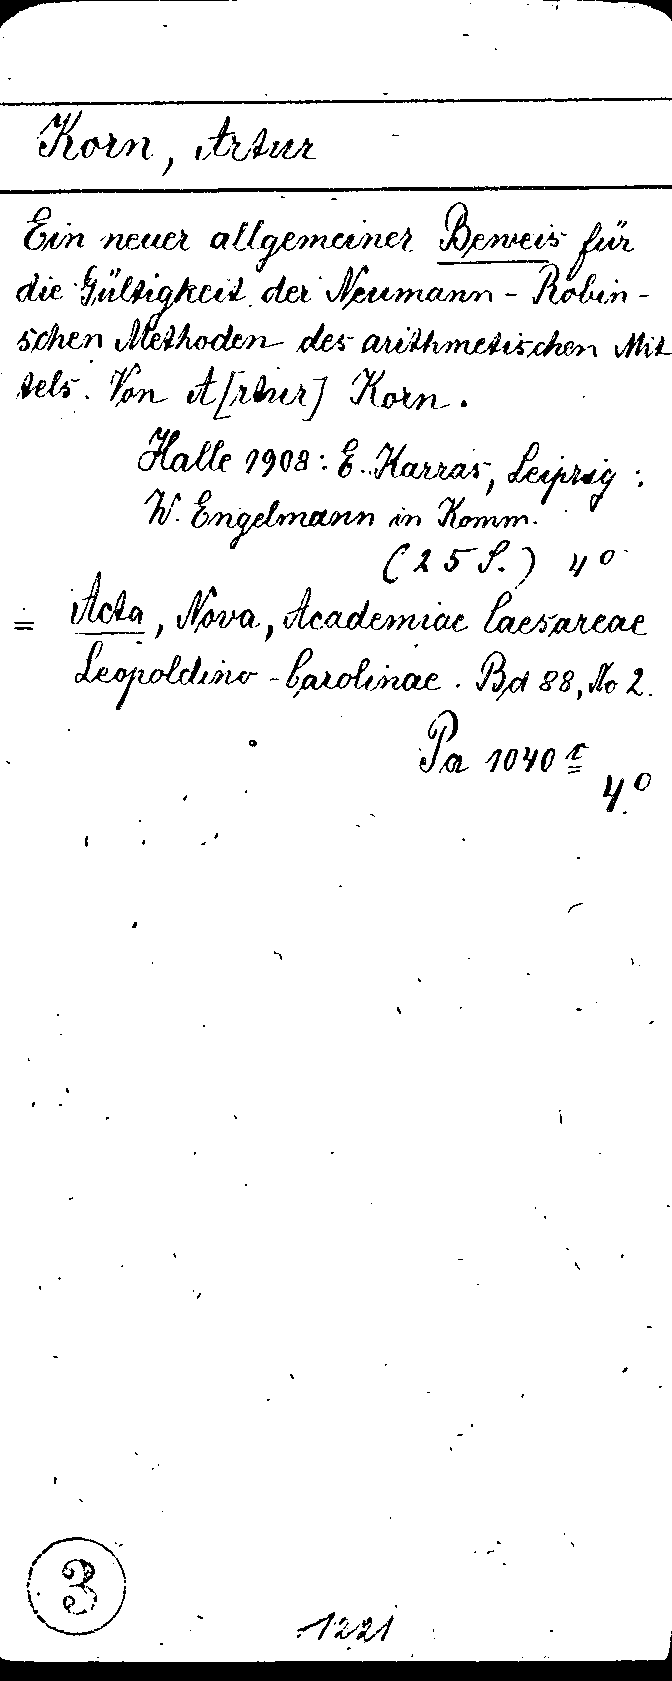 Korn, Artur
Ein neuer allgemeiner Beweis für
die Gültigkeit der Neumann-Robin-
schen Methoden des arithmetischen Mit
tels. Von A[rtur] Korn.
Halle 1908: E. Karras, Leipzig:
W. Engelmann in Komm.
(25 S.) 4°
= Acta, Nova, Academiae Caesareae
Leopoldino-Carolinae. Bd 88, No 2.
Pa 1040
4°
3
1221